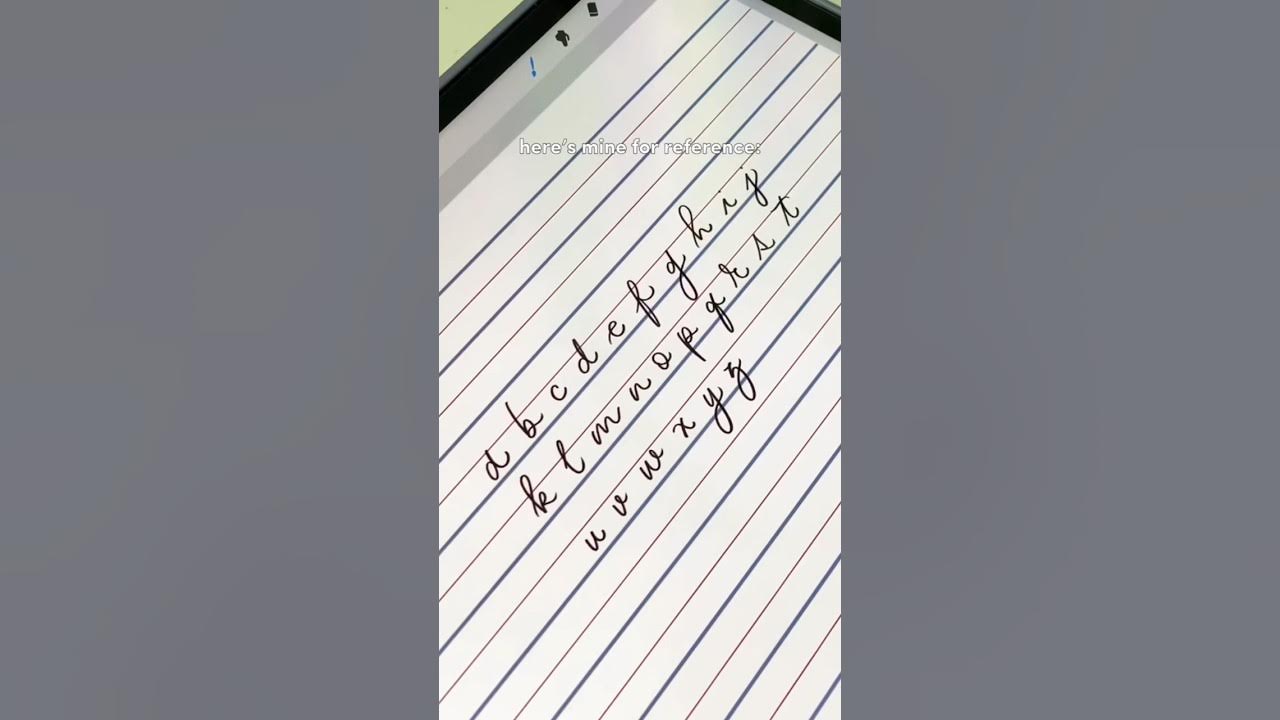 here's mine for reference:
a b c d e f g h i j
k l m n o p q r s t
u v w x y z